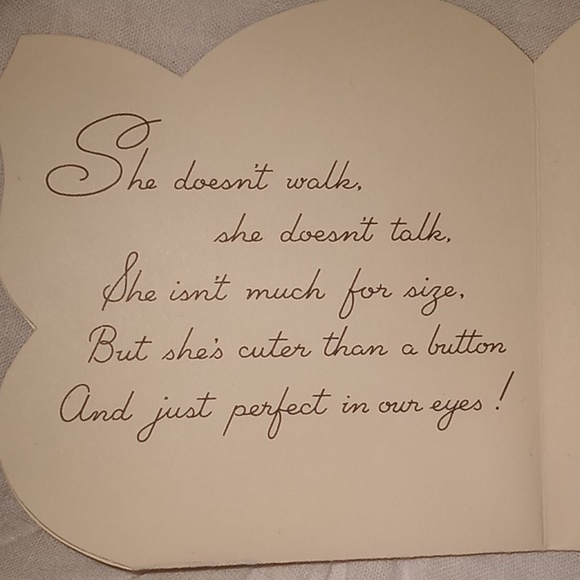 She doesn't walk,
she doesn't talk,
She isn't much for size,
But she's cuter than a button
And just perfect in our eyes!